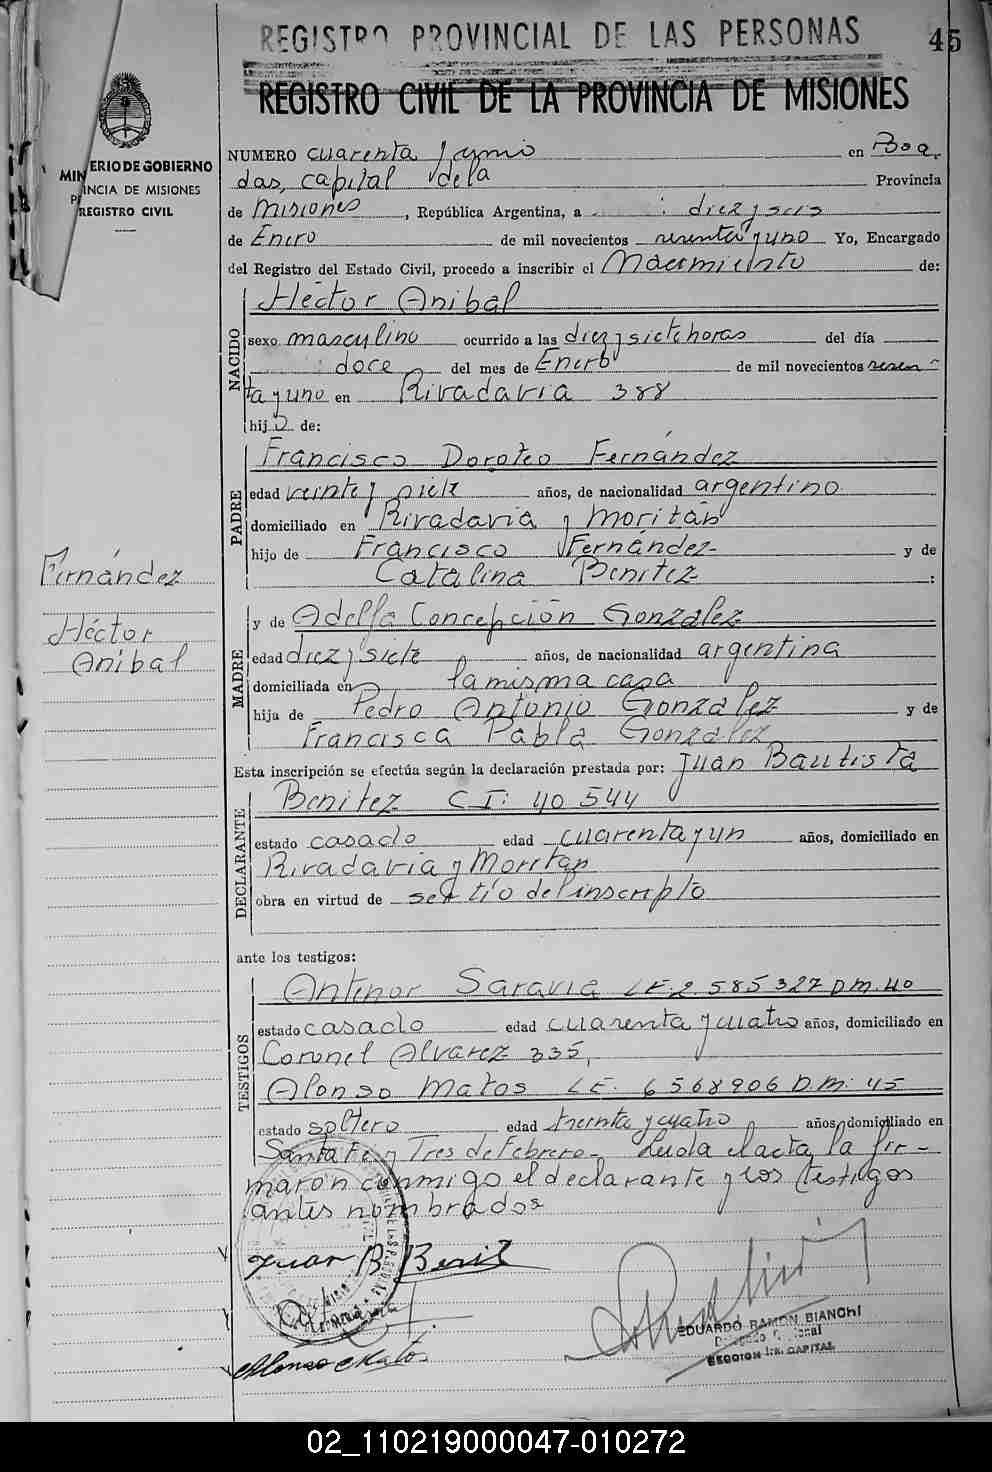 REGISTRO PROVINCIAL DE LAS PERSONAS
45
REGISTRO CIVIL DE LA PROVINCIA DE MISIONES
MINISTERIO DE GOBIERNO
PROVINCIA DE MISIONES
REGISTRO CIVIL
NUMERO cuarenta y uno en Posa
das, capital de la Provincia
de Misiones, República Argentina, a diez y seis
de Enero de mil novecientos sesenta y uno Yo, Encargado
del Registro del Estado Civil, procedo a inscribir el Nacimiento de:
NACIDO
Héctor Anibal
sexo masculino ocurrido a las diez y siete horas del día
doce del mes de Enero de mil novecientos sesen-
ta y uno en Rivadavia 388
hijo de:
PADRE
Francisco Doroteo Fernández
edad veinte y siete años, de nacionalidad argentino
domiciliado en Rivadavia y Moritán
hijo de Francisco Fernández y de
Catalina Benitez :
Fernández
Héctor
Anibal
MADRE
y de Adelfa Concepción Gonzalez
edad diez y siete años, de nacionalidad argentina
domiciliada en la misma casa
hija de Pedro Antonio Gonzalez y de
Francisca Pabla Gonzalez
Esta inscripción se efectúa según la declaración prestada por: Juan Bautista
DECLARANTE
Benitez C I: 40 544
estado casado edad cuarenta y un años, domiciliado en
Rivadavia y Moritan
obra en virtud de ser tío del inscripto
ante los testigos:
TESTIGOS
Antenor Saravia L E. 2 585 327 D.M. 40
estado casado edad cuarenta y cuatro años, domiciliado en
Coronel Alvarez 335,
Alonso Matos L E. 6 568 906 D.M. 45
estado soltero edad treinta y cuatro años, domiciliado en
Santa Fe y Tres de Febrero- Leida el acta, la fir-
maron conmigo el declarante y los testigos
antes nombrados
Juan B Benitez
Alonso Matos
EDUARDO RAMON BIANCHI
SECCION 1ra. CAPITAL
02_110219000047-010272